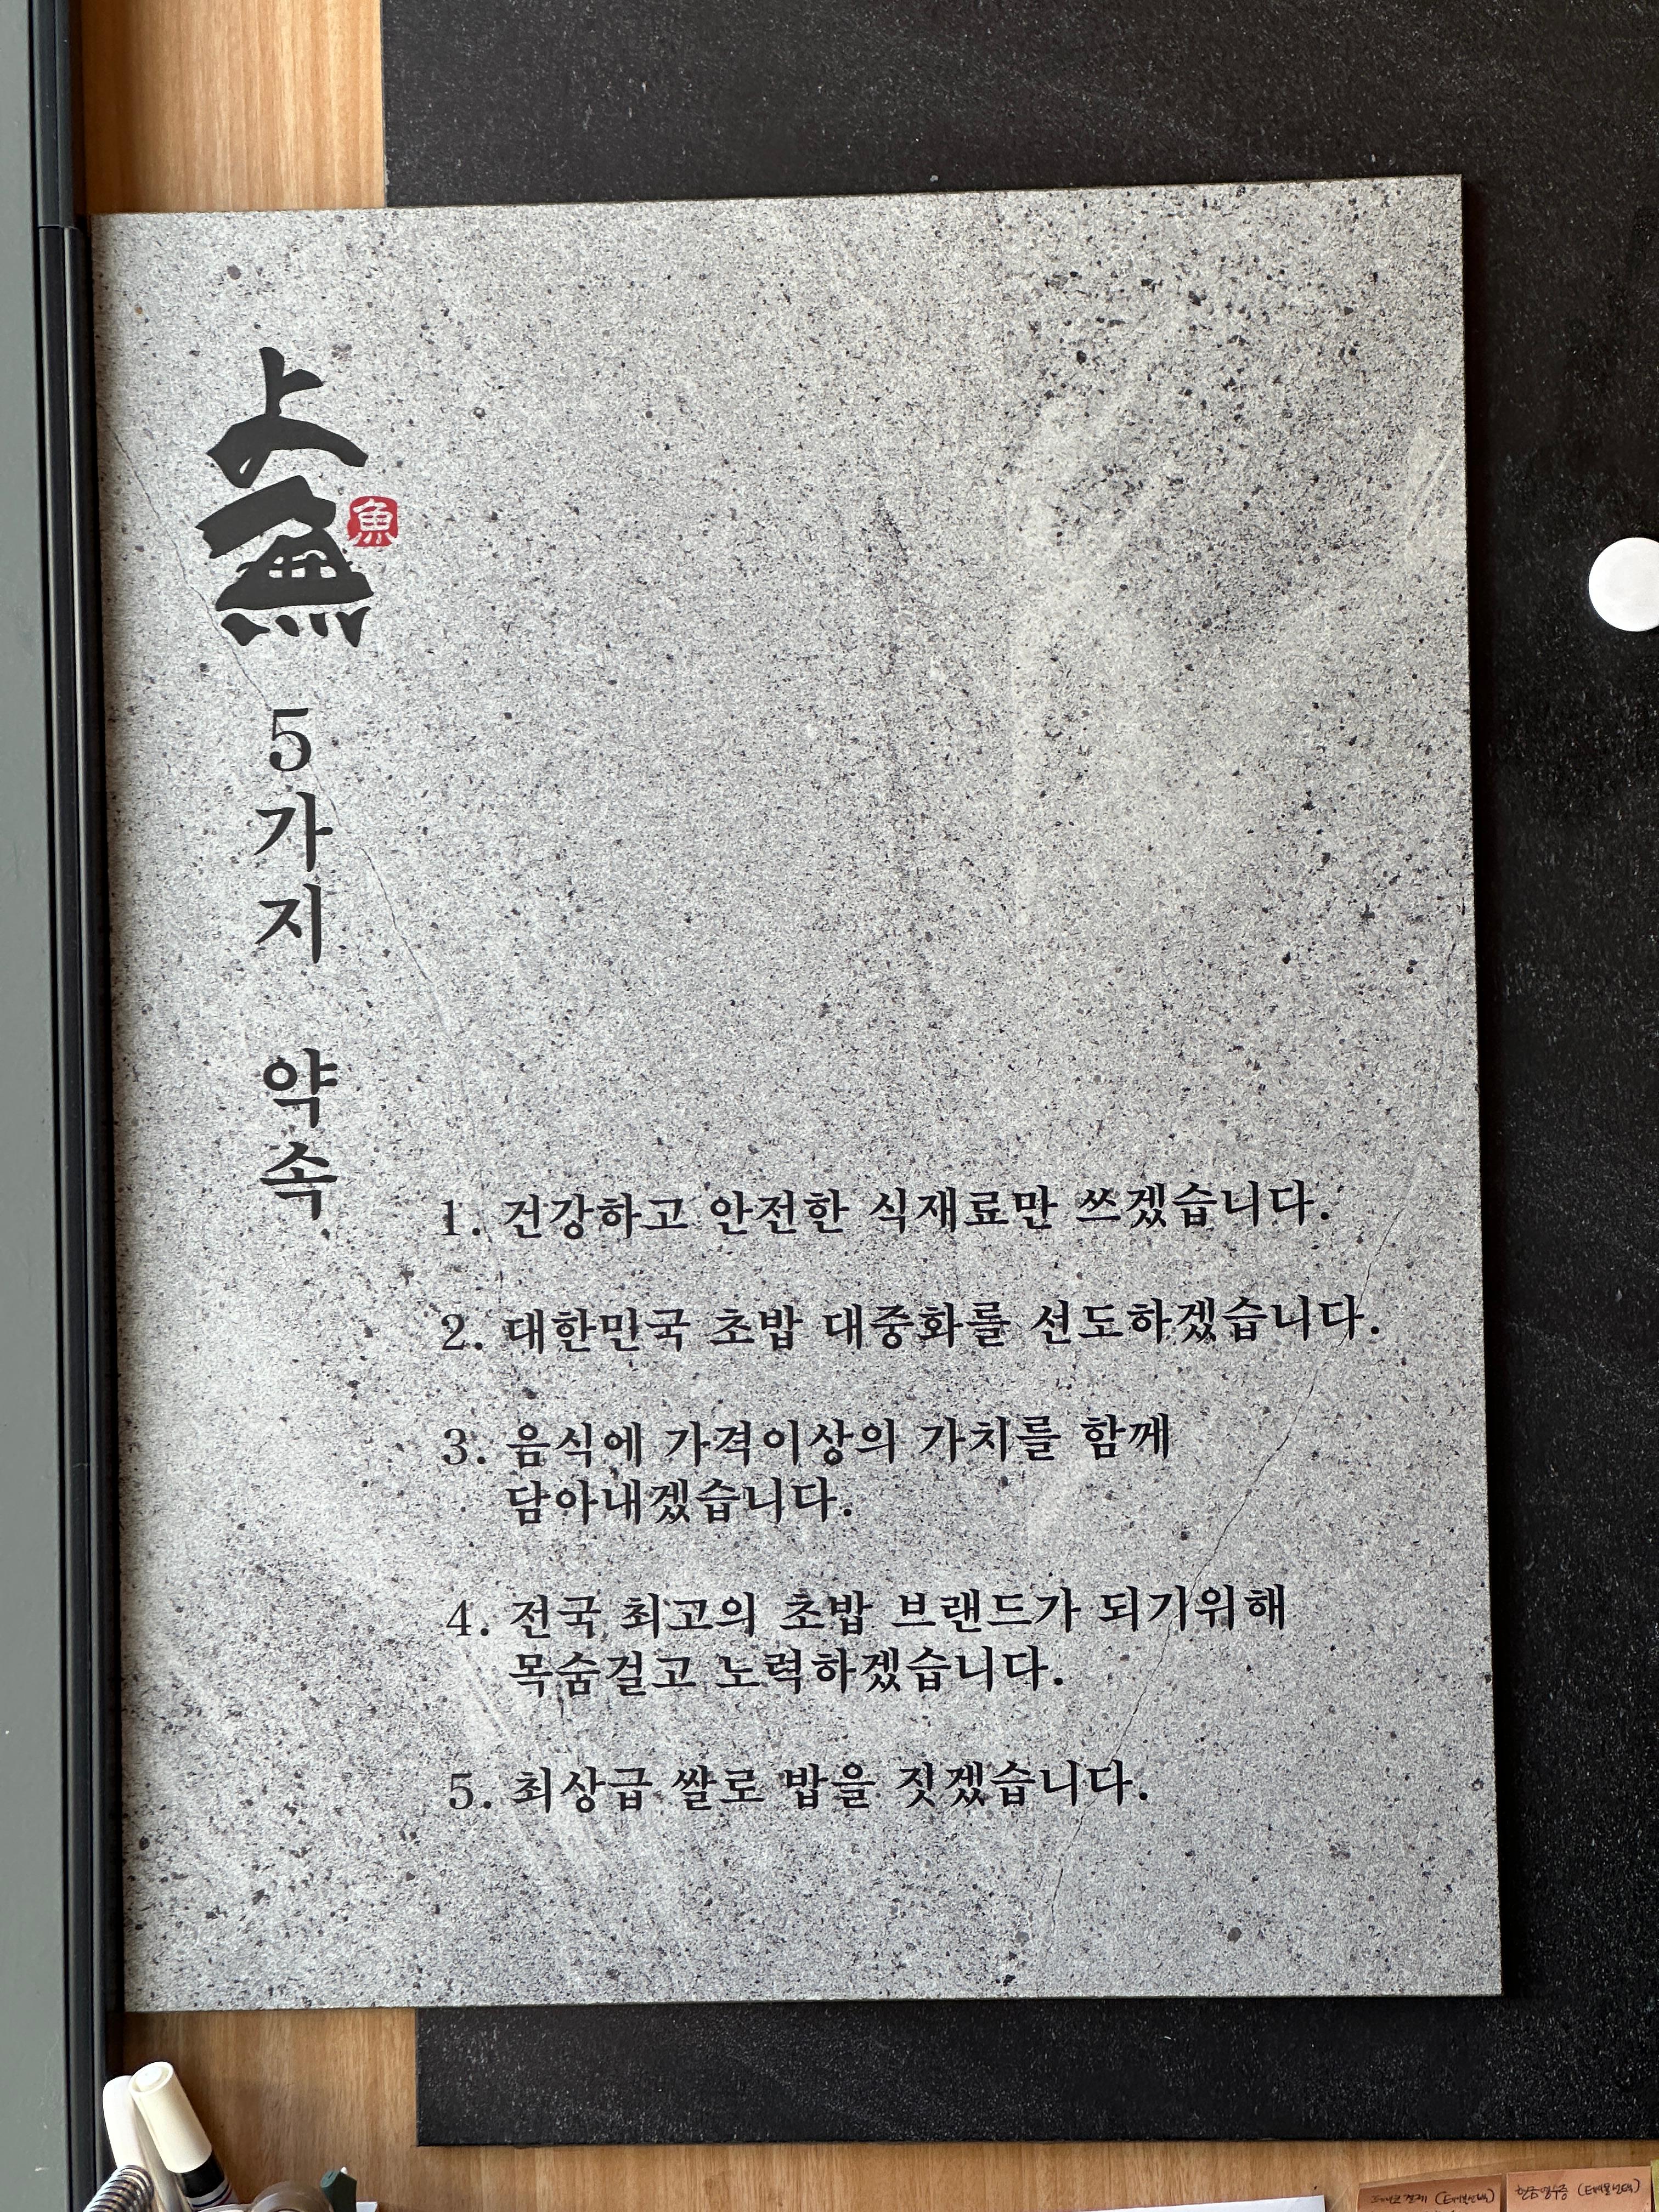 上無
魚
5가지 약속
1. 건강하고 안전한 식재료만 쓰겠습니다.
2. 대한민국 초밥 대중화를 선도하겠습니다.
3. 음식에 가격이상의 가치를 함께
담아내겠습니다.
4. 전국 최고의 초밥 브랜드가 되기위해
목숨걸고 노력하겠습니다.
5. 최상급 쌀로 밥을 짓겠습니다.